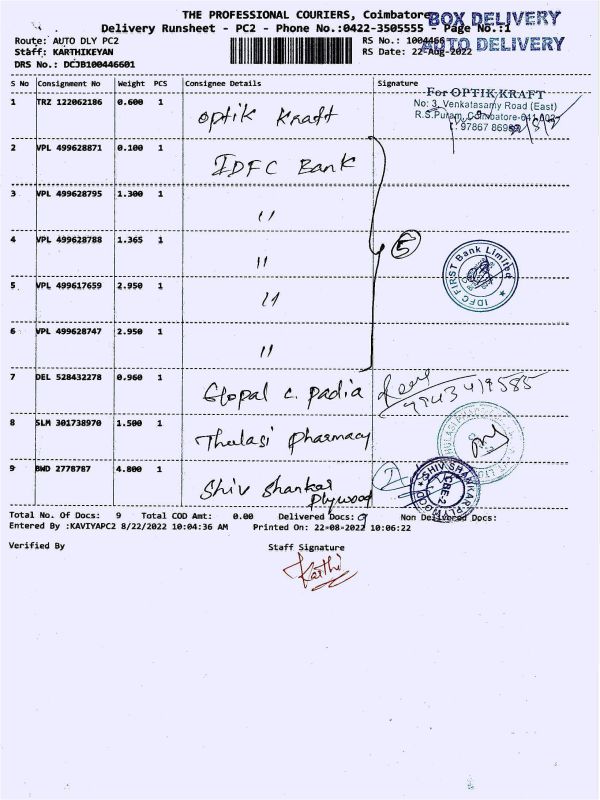 THE PROFESSIONAL COURIERS, Coimbatore
BOX DELIVERY
Delivery Runsheet - PC2 - Phone No.:0422-3505555 - Page No.:1
AUTO DELIVERY
Route: AUTO DLY PC2
RS No.: 1004466
Staff: KARTHIKEYAN
RS Date: 22-Aug-2022
DRS No.: DCJB100446601
S No Consignment No Weight PCS Consignee Details Signature
1 TRZ 122062186 0.600 1 Optik Kraft
For OPTIK KRAFT
No: 3, Venkatasamy Road (East)
R.S.Puram, Coimbatore-641 002
2 VPL 499628871 0.100 1 IDFC Bank
3 VPL 499628795 1.300 1 "
4 VPL 499628788 1.365 1 "
5
IDFC FIRST Bank Limited
5 VPL 499617659 2.950 1 "
6 VPL 499628747 2.950 1 "
7 DEL 528432278 0.960 1 Gopal C. Padia
9943419585
8 SLM 301738970 1.500 1 Thulasi Pharmacy
9 BWD 2778787 4.800 1 Shiv Shankar
Plywood
SHIV SHANKAR PLYWOOD
CBE-2
Total No. Of Docs: 9 Total COD Amt: 0.00 Delivered Docs: 9 Non Delivered Docs:
Entered By :KAVIYAPC2 8/22/2022 10:04:36 AM Printed On: 22-08-2022 10:06:22
Verified By Staff Signature
Karthi